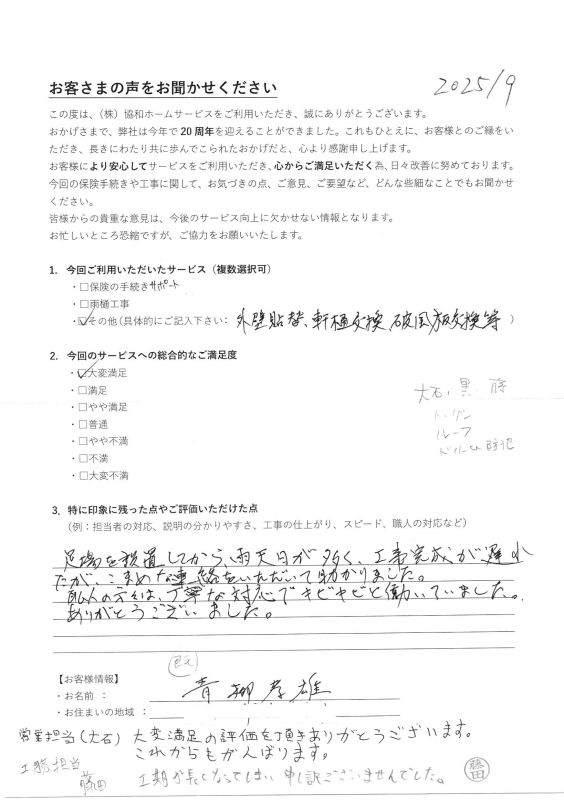 2025/9
お客さまの声をお聞かせください
この度は、（株）協和ホームサービスをご利用いただき、誠にありがとうございます。
おかげさまで、弊社は今年で20周年を迎えることができました。これもひとえに、お客様とのご縁をい
ただき、長きにわたり共に歩んでこられたおかげだと、心より感謝申し上げます。
お客様により安心してサービスをご利用いただき、心からご満足いただく為、日々改善に努めております。
今回の保険手続きや工事に関して、お気づきの点、ご意見、ご要望など、どんな些細なことでもお聞かせ
ください。
皆様からの貴重な意見は、今後のサービス向上に欠かせない情報となります。
お忙しいところ恐縮ですが、ご協力をお願いいたします。
1. 今回ご利用いただいたサービス（複数選択可）
・□保険の手続きサポート
・□雨樋工事
・☑その他（具体的にご記入下さい： 外壁貼替、軒樋交換、破風板交換等 ）
2. 今回のサービスへの総合的なご満足度
・☑大変満足
・□満足
・□やや満足
・□普通
・□やや不満
・□不満
・□大変不満
大石、黒、藤
ルーフ
3. 特に印象に残った点やご評価いただけた点
（例：担当者の対応、説明の分かりやすさ、工事の仕上がり、スピード、職人の対応など）
足場を設置してから、雨天日が多く、工事完成が遅れ
たが、こまめな連絡をいただいて助かりました。
職人の方々は、丁寧な対応でキビキビと働いていました。
ありがとうございました。
【お客様情報】
・お名前 ： 青柳孝雄
・お住まいの地域 ：
営業担当（大石） 大変満足の評価を頂きありがとうございます。
これからもがんばります。
工務担当
藤田 工期が長くなってしまい申し訳ございませんでした。 藤田